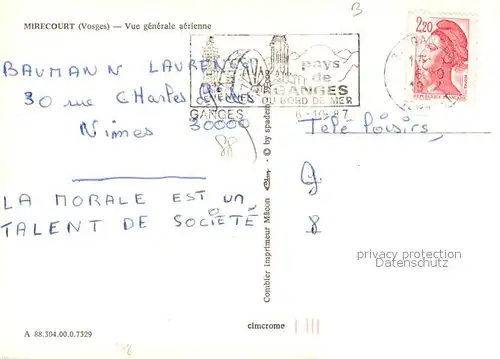 MIRECOURT (Vosges) — Vue générale aérienne
B
BAUMANN LAURENCE
30 rue Charles
Nimes 30000
88
LA MORALE EST UN
TALENT DE SOCIÉTÉ
pays
de
GANGES
DU BORD DE MER
CEVENNES
GANGES
2,20
REPUBLIQUE FRANCAISE
Télé Loisirs,
8
Combier imprimeur Mâcon
© by spadem
privacy protection
Datenschutz
cimcrome
A 88.304.00.0.7329